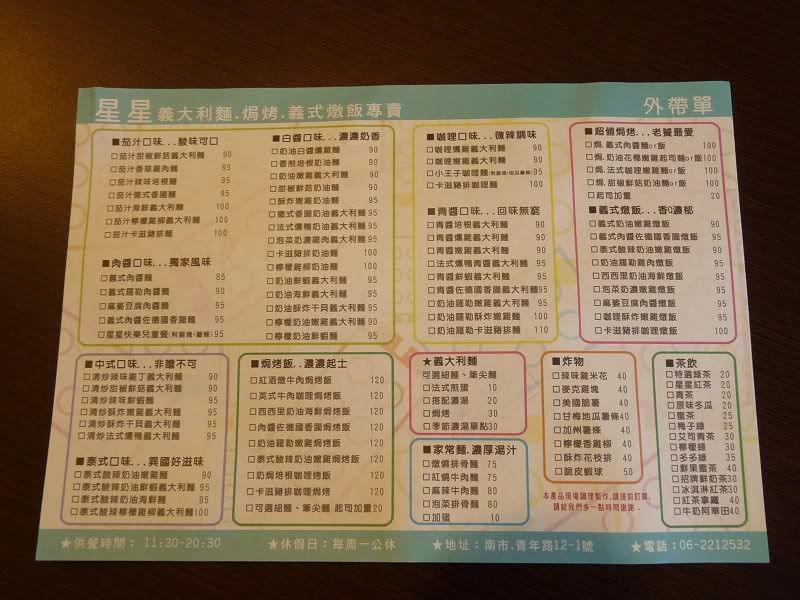 星星義大利麵.焗烤.義式燉飯專賣
外帶單
■茄汁口味...酸味可口
□茄汁甜椒鮮菇義大利麵 90
□茄汁香草雞肉麵 95
□茄汁辣味培根麵 95
□茄汁德式香腸麵 95
□茄汁海鮮義大利麵 100
□茄汁檸檬雞柳義大利麵 100
□茄汁卡滋豬排麵 100
■肉醬口味...獨家風味
□義式肉醬麵 85
□義式羅勒肉醬麵 90
□麻婆豆腐肉醬麵 95
□義式肉醬佐德國香腸麵 95
□星星快樂兒童餐(附雞塊、薯條)95
■白醬口味...濃濃奶香
□奶油白醬燻雞麵 90
□香煎培根奶油麵 90
□奶油嫩雞義大利麵 90
□甜椒鮮菇奶油麵 90
□酥炸嫩雞奶油麵 95
□德式香腸奶油義大利麵 95
□法式燻鴨奶油義大利麵 95
□泡菜奶濃雞肉義大利麵 95
□卡滋豬排奶油麵 100
□檸檬雞柳奶油麵 100
□奶油海鮮義大利麵 95
□奶油酥炸干貝義大利麵 95
□檸檬奶油嫩雞義大利麵 90
□奶油鮮蝦麵 95
■咖哩口味...微辣調味
□咖哩燻雞義大利麵 90
□咖哩嫩雞義大利麵 90
□小王子咖哩麵(附雞塊,地瓜薯條)95
□卡滋豬排咖哩麵 100
■青醬口味...回味無窮
□青醬培根義大利麵 90
□青醬燻雞義大利麵 90
□青醬嫩雞義大利麵 90
□法式燻鴨青醬義大利麵 95
□青醬鮮蝦義大利麵 95
□青醬佐德國香腸義大利麵95
□奶油羅勒嫩雞義大利麵 95
□奶油羅勒海鮮義大利麵 100
□奶油羅勒卡滋豬排麵 110
■超值焗烤...老饕最愛
□焗.義式肉醬麵or飯 100
□焗.奶油花椰嫩雞起司麵or飯100
□焗.法式咖哩嫩雞麵or飯 100
□焗.甜椒鮮菇奶油麵or飯 100
□起司加量 20
■義式燉飯...香Q濃郁
□義式奶油嫩雞燉飯 90
□義式肉醬佐德國香腸燉飯 95
□泰式酸辣奶油嫩雞燉飯 95
□奶油羅勒雞肉燉飯 95
□西西里奶油海鮮燉飯 95
□泡菜奶濃嫩雞燉飯 95
□麻婆豆腐肉醬燉飯 95
□咖哩酥炸嫩雞燉飯 95
□卡滋豬排咖哩燉飯 100
■中式口味...非嚐不可
□清炒辣味雞丁義大利麵 90
□清炒甜椒鮮菇義大利麵 90
□清炒辣味鮮蝦麵 95
□清炒酥炸嫩雞義大利麵 95
□清炒酥炸干貝義大利麵 95
□清炒法式燻鴨義大利麵 95
■泰式口味...異國好滋味
□泰式酸辣奶油嫩雞麵 90
□泰式酸辣奶油鮮蝦麵 95
□泰式酸辣奶油海鮮麵 95
□泰式酸辣檸檬雞柳義大利麵100
■焗烤飯..濃濃起士
□紅酒燉牛肉焗烤飯 120
□英式牛肉咖哩焗烤飯 120
□西西里奶油海鮮焗烤飯 120
□肉醬佐德國香腸焗烤飯 120
□奶油羅勒嫩雞焗烤飯 120
□泰式酸辣奶油嫩雞焗烤飯 120
□奶焗培根咖哩烤飯 120
□卡滋豬排咖哩焗烤 120
□可選細麵、筆尖麵 起司加量20
★義大利麵
可選細麵、筆尖麵
□法式煎蛋 10
□搭配濃湯 20
□焗烤 30
□季節濃湯單點30
■家常麵.濃厚湯汁
□燉燒排骨麵 75
□紅燒牛肉麵 75
□麻辣牛肉麵 80
□泡菜排骨麵 80
□加蛋 10
■炸物
□辣味雞米花 40
□麥克雞塊 40
□美國脆薯 40
□甘梅地瓜薯條40
□加州薯條 40
□檸檬香雞柳 40
□酥炸花枝排 40
□脆皮蝦球 50
本產品現場調理製作,請提前訂購,
請給我們多一點時間謝謝。
■茶飲
□特選綠茶 20
□星星紅茶 20
□青茶 20
□原味冬瓜 20
□蜜茶 20
□梅子綠 25
□艾司青茶 30
□檸檬綠 30
□多多綠 35
□鮮果蜜茶 40
□招牌鮮奶茶30
□冰淇淋紅茶30
□紅茶拿鐵 40
□牛奶阿華田40
★供餐時間: 11:30-20:30
★休假日:每周一公休
★地址:南市.青年路12-1號
★電話:06-2212532